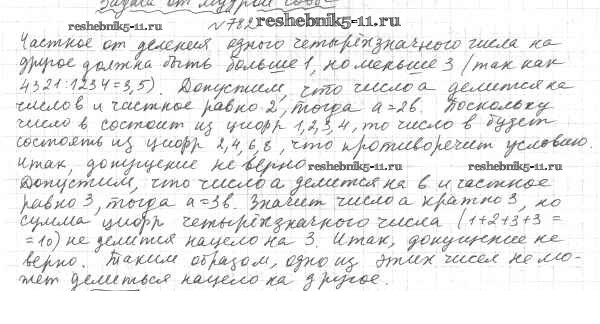 Задача от мудрой совы
reshebnik5-11.ru № 782 reshebnik5-11.ru
Частное от деления одного четырёхзначного числа на
другое должна быть больше 1, но меньше 3 (так как
4321:1234=3,5). Допустим, что число а делится на
число в и частное равно 2, тогда а=2в. Поскольку
число в состоит из цифр 1,2,3,4, то число в будет
состоять из цифр 2,4,6,8, что противоречит условию.
Итак, допущение не верно. reshebnik5-11.ru reshebnik5-11.ru
Допустим, что число а делется на в и частное
равно 3, тогда а=3в. Значит число а кратно 3, но
сумма цифр четырёхзначного числа (1+2+3+3=
=10) не делится нацело на 3. Итак, допущение не
верно. Таким образом, одно из этих чисел не мо-
жет делиться нацело на другое.